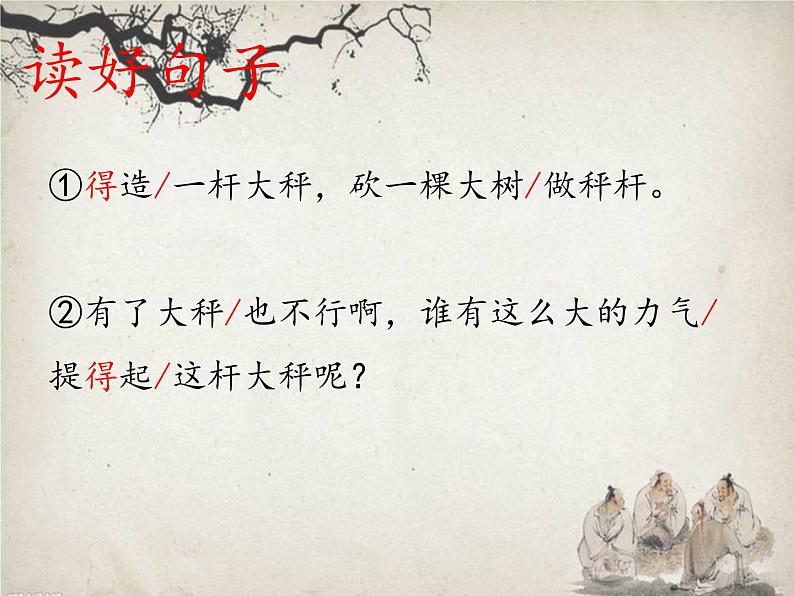 读好句子
①得造/一杆大秤，砍一棵大树/做秤杆。
②有了大秤/也不行啊，谁有这么大的力气/
提得起/这杆大秤呢？